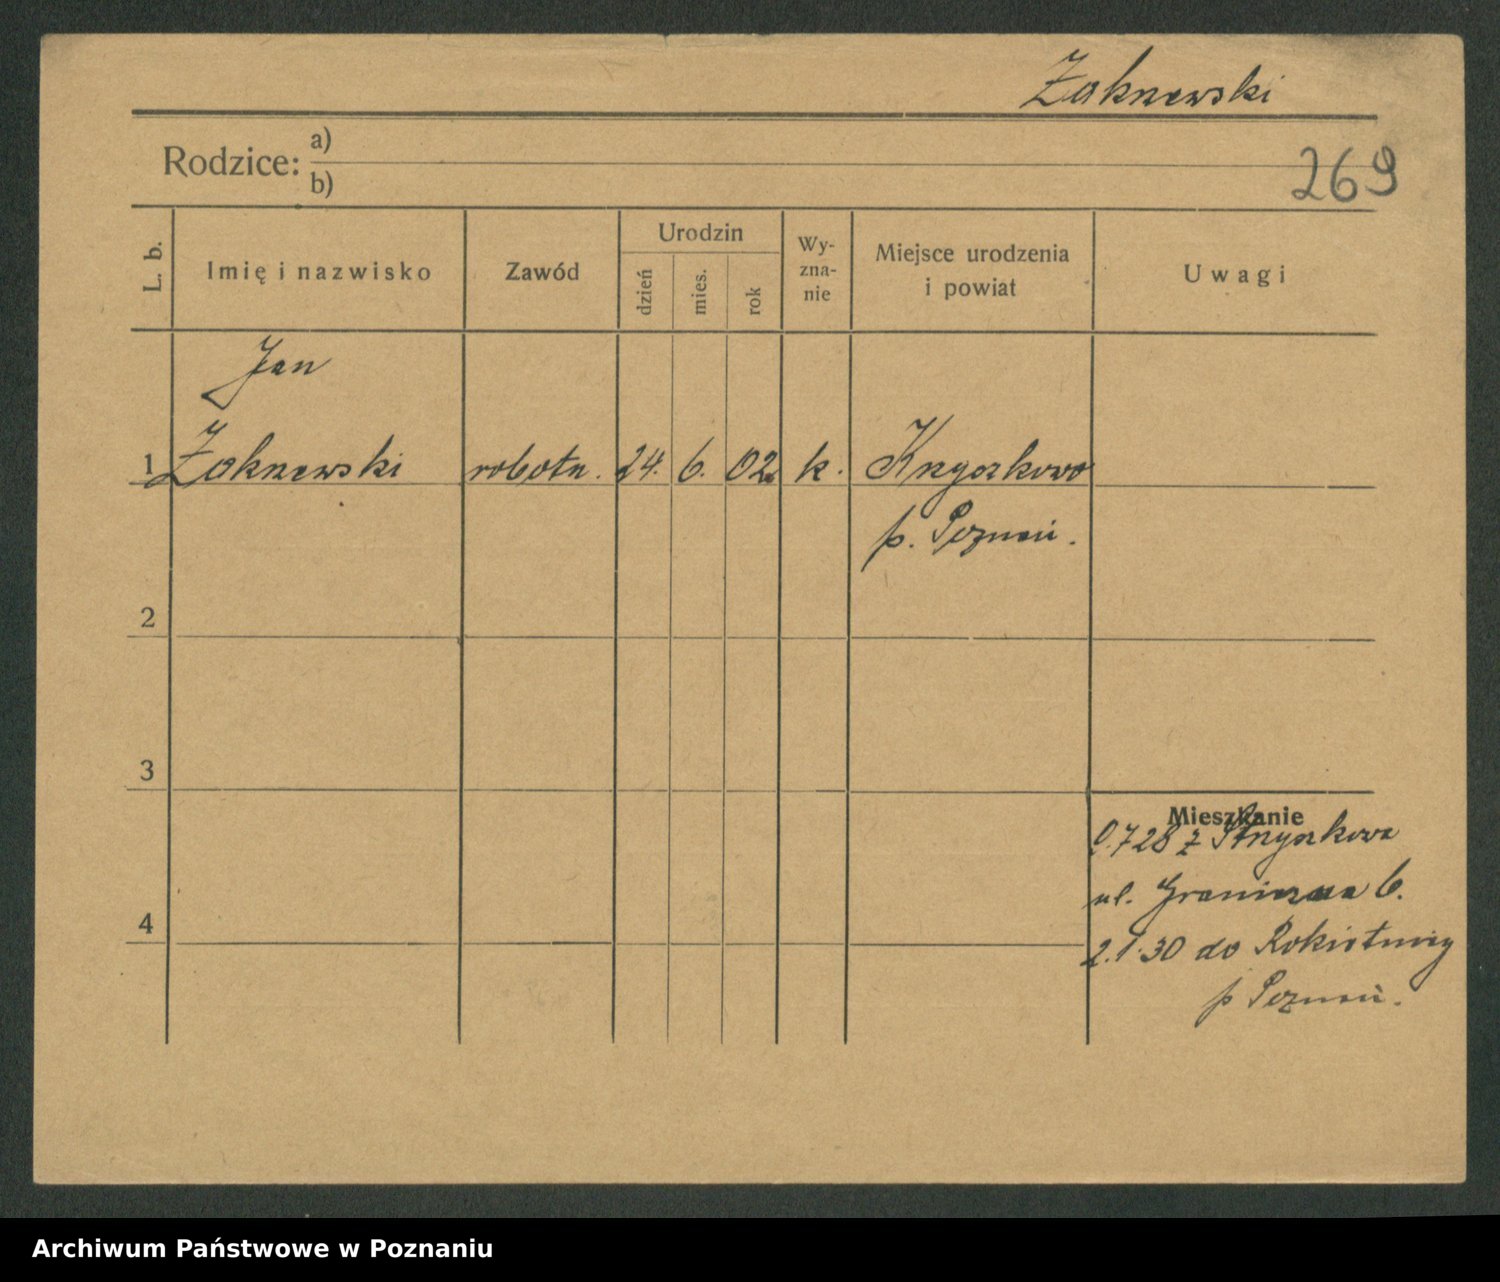 Żaknewski
Rodzice: a)
b)
269
L. b.
Imię i nazwisko
Zawód
Urodzin
dzień
mies.
rok
Wy-
zna-
nie
Miejsce urodzenia
i powiat
Uwagi
Jan
1 Żaknewski robotn. 24. 6. 02. k.
p. Poznań.
2
3
Mieszkanie
728 z
ul. Graniczna 6.
4
2.1.30 do Rokietnicy
p Poznań.
Archiwum Państwowe w Poznaniu